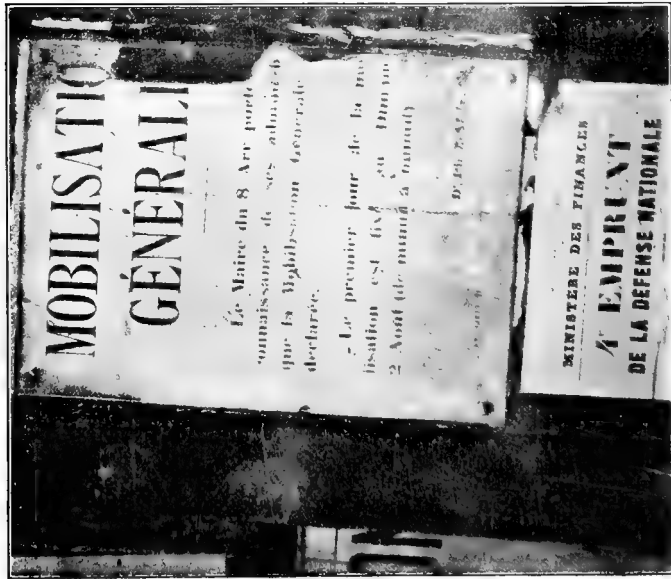 MOBILISATIO
GÉNÉRALE
Le Maire du 8 Arr porte
connaissance de ses administrés
que la Mobilisation Générale
declarée.
Le premier jour de la mo
lisation est fixé au Diman
2 Août (de minuit à minuit)
MINISTERE DES FINANCES
4e EMPRUNT
DE LA DEFENSE NATIONALE